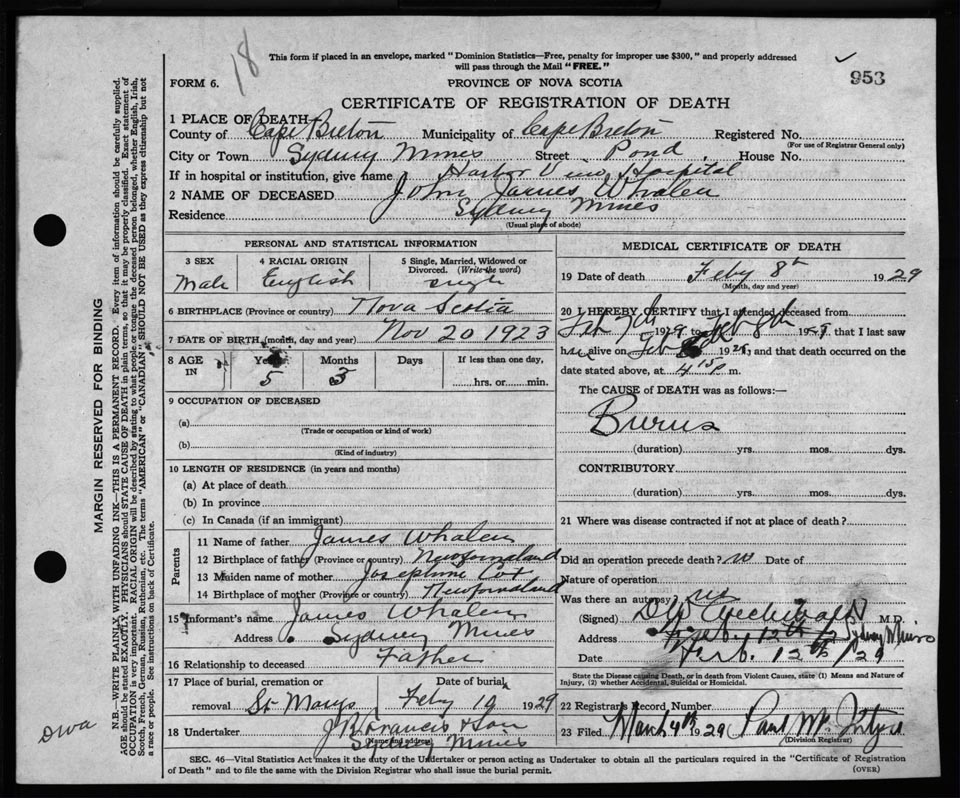 18
This form if placed in an envelope, marked "Dominion Statistics—Free, penalty for improper use $300," and properly addressed
will pass through the Mail "FREE."
953
FORM 6.
PROVINCE OF NOVA SCOTIA
CERTIFICATE OF REGISTRATION OF DEATH
1 PLACE OF DEATH—
County of Cape Breton Municipality of Cape Breton Registered No.
(For use of Registrar General only)
City or Town Sydney Mines Street Pond House No.
If in hospital or institution, give name Harbor View Hospital
2 NAME OF DECEASED John James Whalen
Residence Sydney Mines
(Usual place of abode)
PERSONAL AND STATISTICAL INFORMATION
3 SEX
Male
4 RACIAL ORIGIN
English
5 Single, Married, Widowed or
Divorced. (Write the word)
single
6 BIRTHPLACE (Province or country) Nova Scotia
7 DATE OF BIRTH (month, day and year) Nov 20 1923
8 AGE
IN
Years
5
Months
3
Days
If less than one day,
hrs. or min.
9 OCCUPATION OF DECEASED
(a)
(Trade or occupation or kind of work)
(b)
(Kind of industry)
10 LENGTH OF RESIDENCE (in years and months)
(a) At place of death
(b) In province
(c) In Canada (if an immigrant)
Parents
11 Name of father James Whalen
12 Birthplace of father (Province or country) Newfoundland
13 Maiden name of mother Josephine Cox
14 Birthplace of mother (Province or country) Newfoundland
15 Informant's name James Whalen
Address Sydney Mines
16 Relationship to deceased Father
17 Place of burial, cremation or
removal St Marys
Date of burial
Feby 10 1929
18 Undertaker J Francis & Son
Sydney Mines
MEDICAL CERTIFICATE OF DEATH
19 Date of death Feby 8th 1929
(Month, day and year)
20 I HEREBY CERTIFY that I attended deceased from
Feb 1929 to Feb 8th 19, that I last saw
h alive on Feb 19, and that death occurred on the
date stated above, at 4 15 P m.
The CAUSE OF DEATH was as follows:—
Burns
(duration) yrs. mos. dys.
CONTRIBUTORY
(duration) yrs. mos. dys.
21 Where was disease contracted if not at place of death?
Did an operation precede death? no Date of
Nature of operation
Was there an autopsy? no
(Signed) Archibald M.D.
Address Sydney Mines
Date Feb. 12th /29
State the Disease causing Death, or in death from Violent Causes, state (1) Means and Nature of
Injury, (2) whether Accidental, Suicidal or Homicidal.
22 Registrar's Record Number
23 Filed March 4th 1929
(Division Registrar)
SEC. 46—Vital Statistics Act makes it the duty of the Undertaker or person acting as Undertaker to obtain all the particulars required in the "Certificate of Registration
of Death" and to file the same with the Division Registrar who shall issue the burial permit.
(OVER)
MARGIN RESERVED FOR BINDING
N.B.—WRITE PLAINLY WITH UNFADING INK—THIS IS A PERMANENT RECORD. Every item of information should be carefully supplied.
AGE should be stated EXACTLY. PHYSICIANS should STATE CAUSE OF DEATH in plain terms, so that it may be properly classified. Exact statement of
OCCUPATION is very important. RACIAL ORIGIN will be described by stating to what people or tongue the deceased person belonged, whether English, Irish,
Scotch, French, German, Russian, Ruthenian, etc. The terms "AMERICAN" or "CANADIAN" SHOULD NOT BE USED as they express citizenship but not
a race or people. See instructions on back of Certificate.